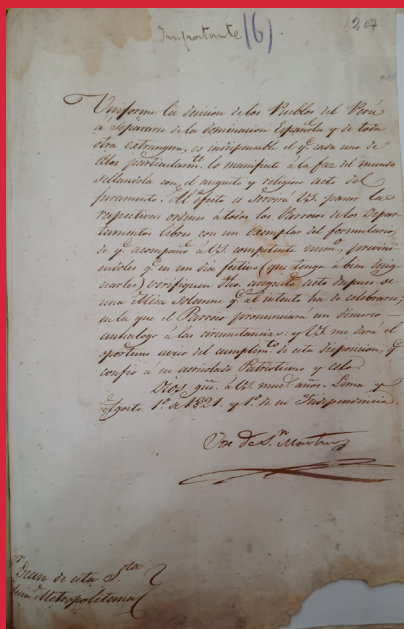 Importante (6).
207
Uniforme la decision de los Pueblos del Perú
á separarse de la dominacion Española y de toda
otra extrangera, es indispensable el q.e cada uno de
ellos particularm.te lo manifieste á la faz del mundo
sellandola con el augusto y religioso acto del
juramento. Al efecto se servirá VS. pasar las
respectivas ordenes á todos los Parrocos de los Depar-
tamentos libres con un exemplar del formulario,
de q.e acompaño á VS. competente num.o, previni-
endoles q.e en un dia festivo (que tenga á bien desig-
narles) verifiquen dho. augusto acto despues de
una Misa solemne q.e al intento ha de celebrarse;
en la que el Parroco pronunciará un discurso
analogo á las circunstancias: y VS. me dará el
oportuno aviso del cumplim.to de esta disposicion, q.e
confio á su acreditado Patriotismo y celo.
Dios gũe. á VS. muc.s añs. Lima y
Agosto 1.o de 1821. y 1.o de su Independencia.
Jose de S.n Martin
S.or Dean de esta S.ta
Metropolitana